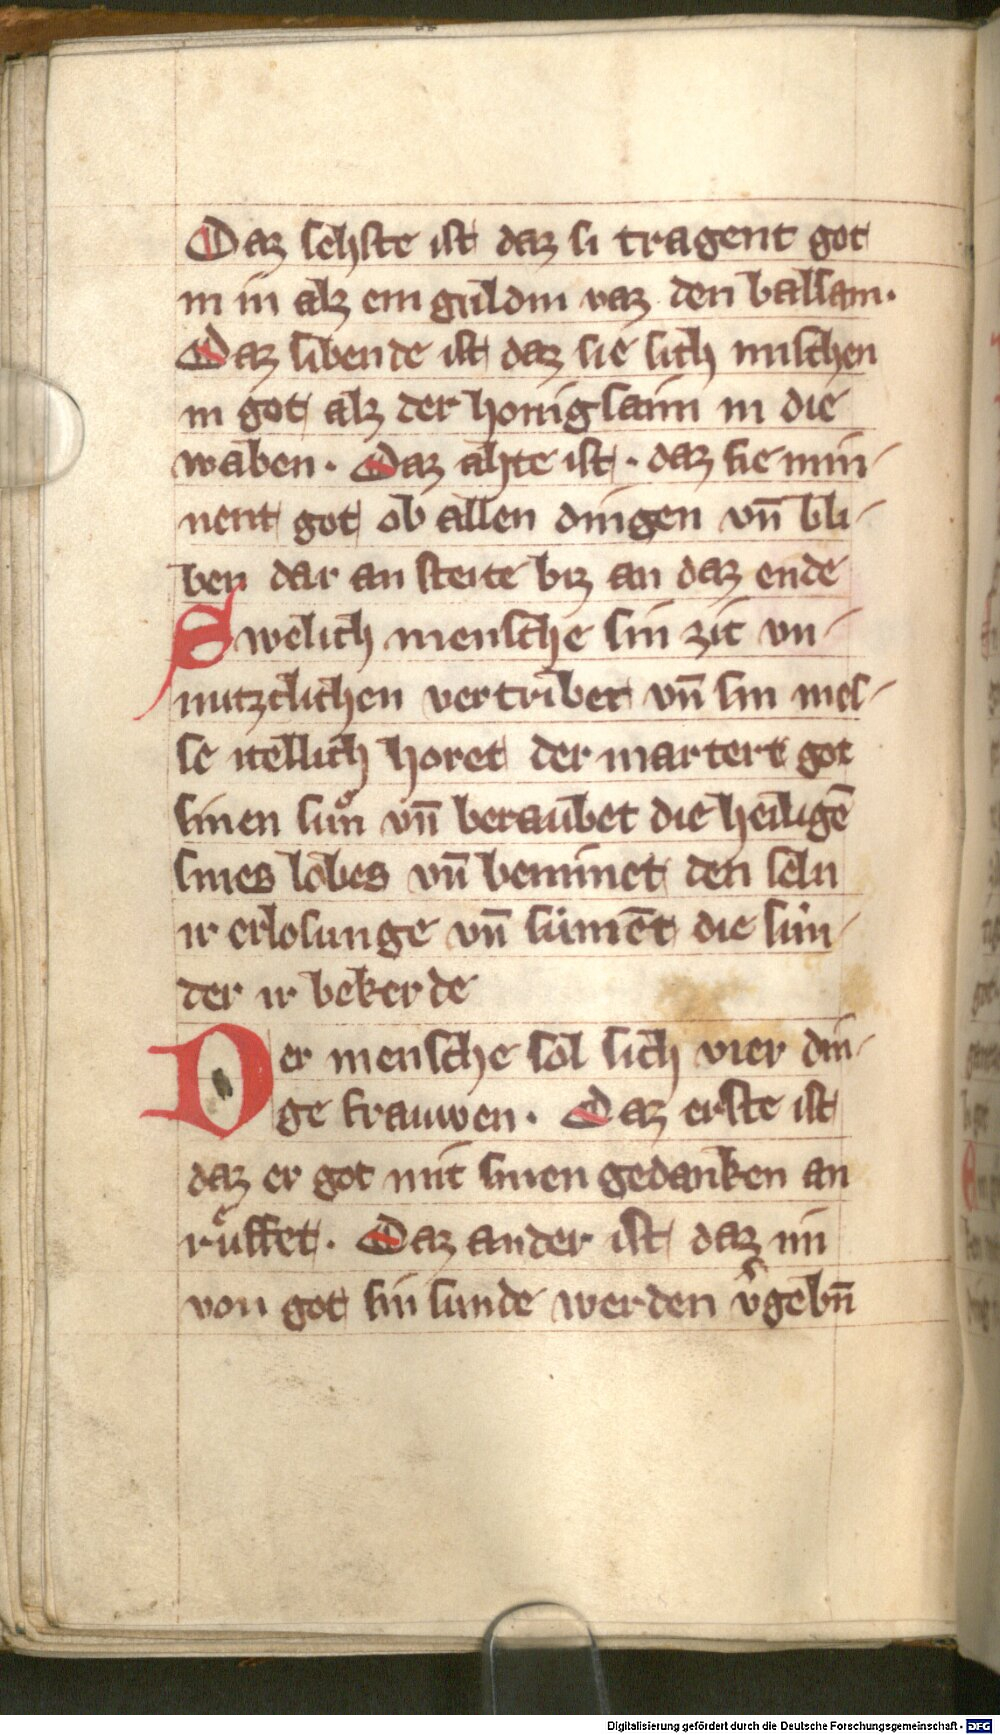 Daz sehste ist daz si tragent got
in in alz ein guldin vaz den balsam·
Daz sibende ist daz sie sich mischen
in got alz der honigsaim in die
waben · Daz ahte ist · daz sie min-
nent got ob allen dingen vn̄ bli-
ben dar an stete biz an daz ende
Swelich mensche sin zit vn-
nutzclichen vertribet vn̄ sin mes-
se itellich horet der martert got
sinen suͦn vn̄ beraubet die heiligē
sines lobes vn̄ beniinet den seln
ir erlosunge vn̄ sumēt die sun-
der ir bekerde
Der mensche sol sich vier din-
ge frauwen · Daz erste ist
daz er got mit sinen gedanken an
ruͤffet · Daz ander ist daz im
von got sin sunde werden v̓gebn̄
Digitalisierung gefördert durch die Deutsche Forschungsgemeinschaft - DFG